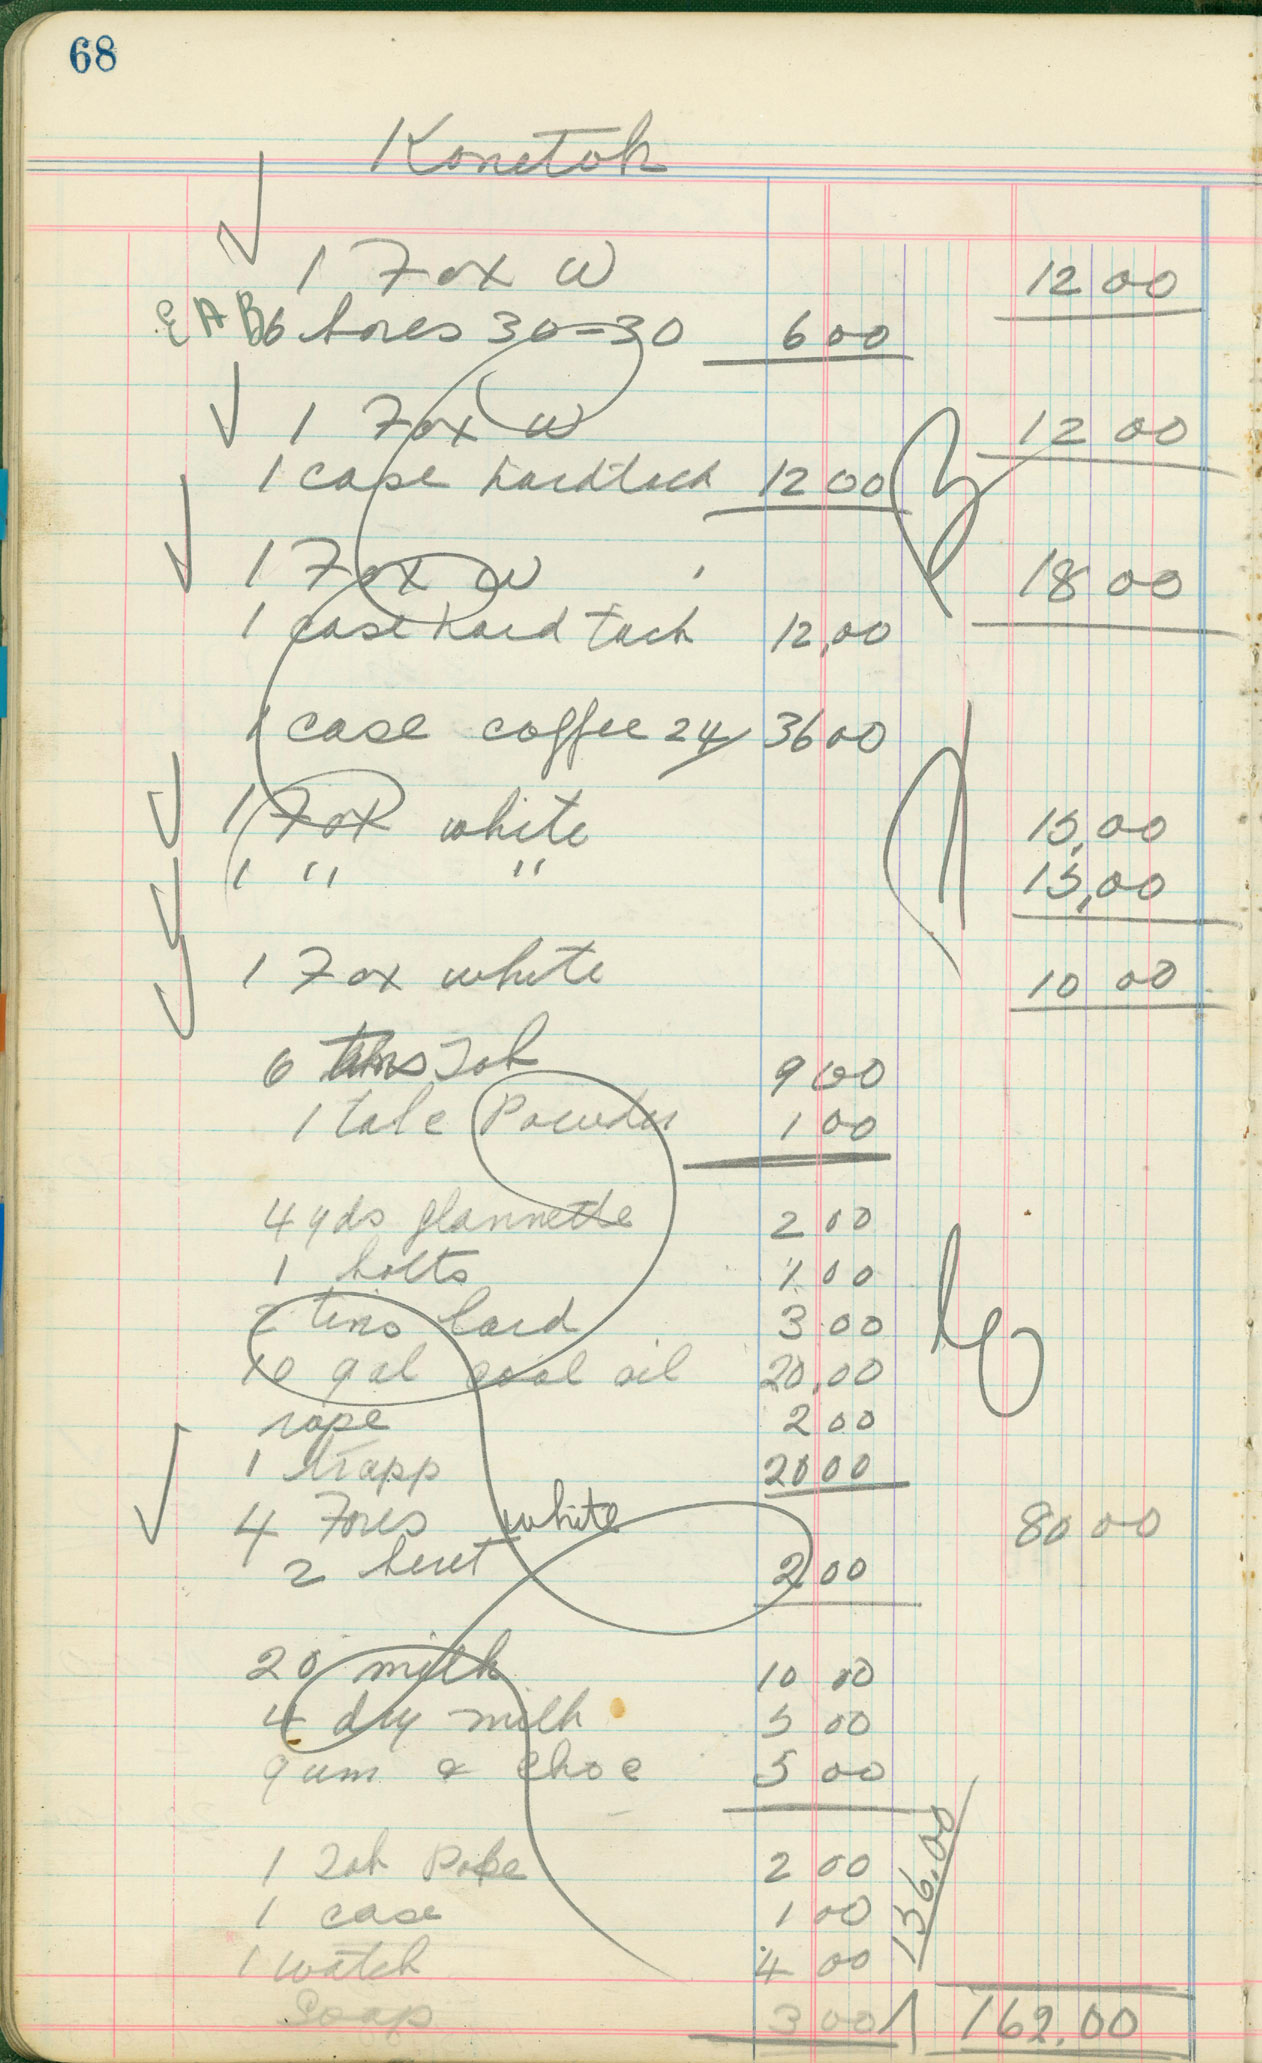 68
Konetok
1 Fox W 12 00
EAB 6 boxes 30-30 6 00
1 Fox W 12 00
1 case hardtack 12 00
1 Fox W 18 00
1 case hard tack 12,00
1 case coffee 24 36 00
1 Fox white 15,00
1 " " 15,00
1 Fox white 10 00
6 tins Tob 9 00
1 talc Powder 1 00
4 yds flannette 2 00
1 bolts 1 00
2 tins lard 3 00
10 gal coal oil 20,00
rope 2 00
1 trapp 20 00
4 Foxes white 80 00
2 beret 2 00
20 milk 10 00
4 dry milk 5 00
gum & choc 5 00
1 Tob Poke 2 00
1 case 1 00
1 watch 4 00
Soap 3 00
156,00
162.00